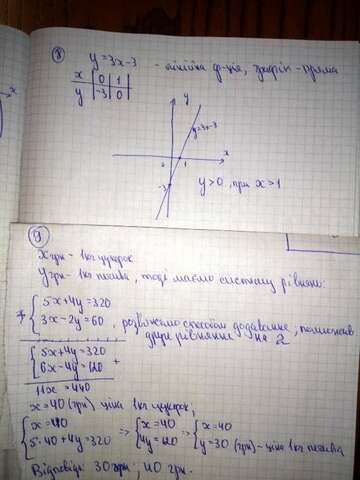 8) y=3x-3 - лінійна ф-ція, графік - пряма
x | 0 | 1
y | -3 | 0
y
y=3x-3
x
0 1
-3
y>0, при x>1
9)
x грн - 1кг цукерок
y грн - 1кг печива, тоді маємо систему рівнянь:
{5x+4y=320
{3x-2y=60, розв'яжемо способом додавання, помножив
друге рівняння на 2
{5x+4y=320
{6x-4y=120 +
11x=440
x=40 (грн) ціна 1кг цукерок;
{x=40 => {x=40 => {x=40
{5·40+4y=320 {4y=120 {y=30 (грн) - ціна 1кг печива
Відповідь: 30 грн, 40 грн.